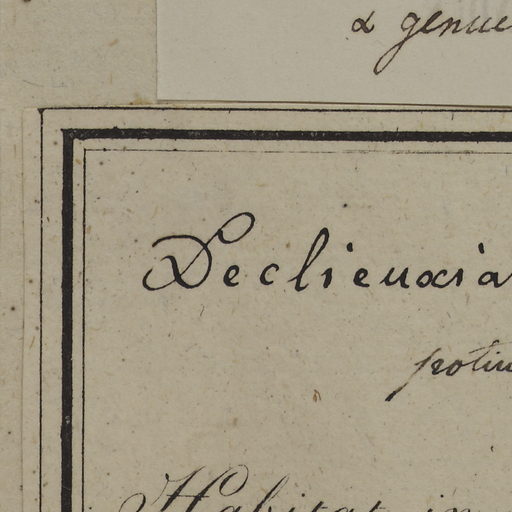 α genue
Declieuxia
potiu
Habitat in